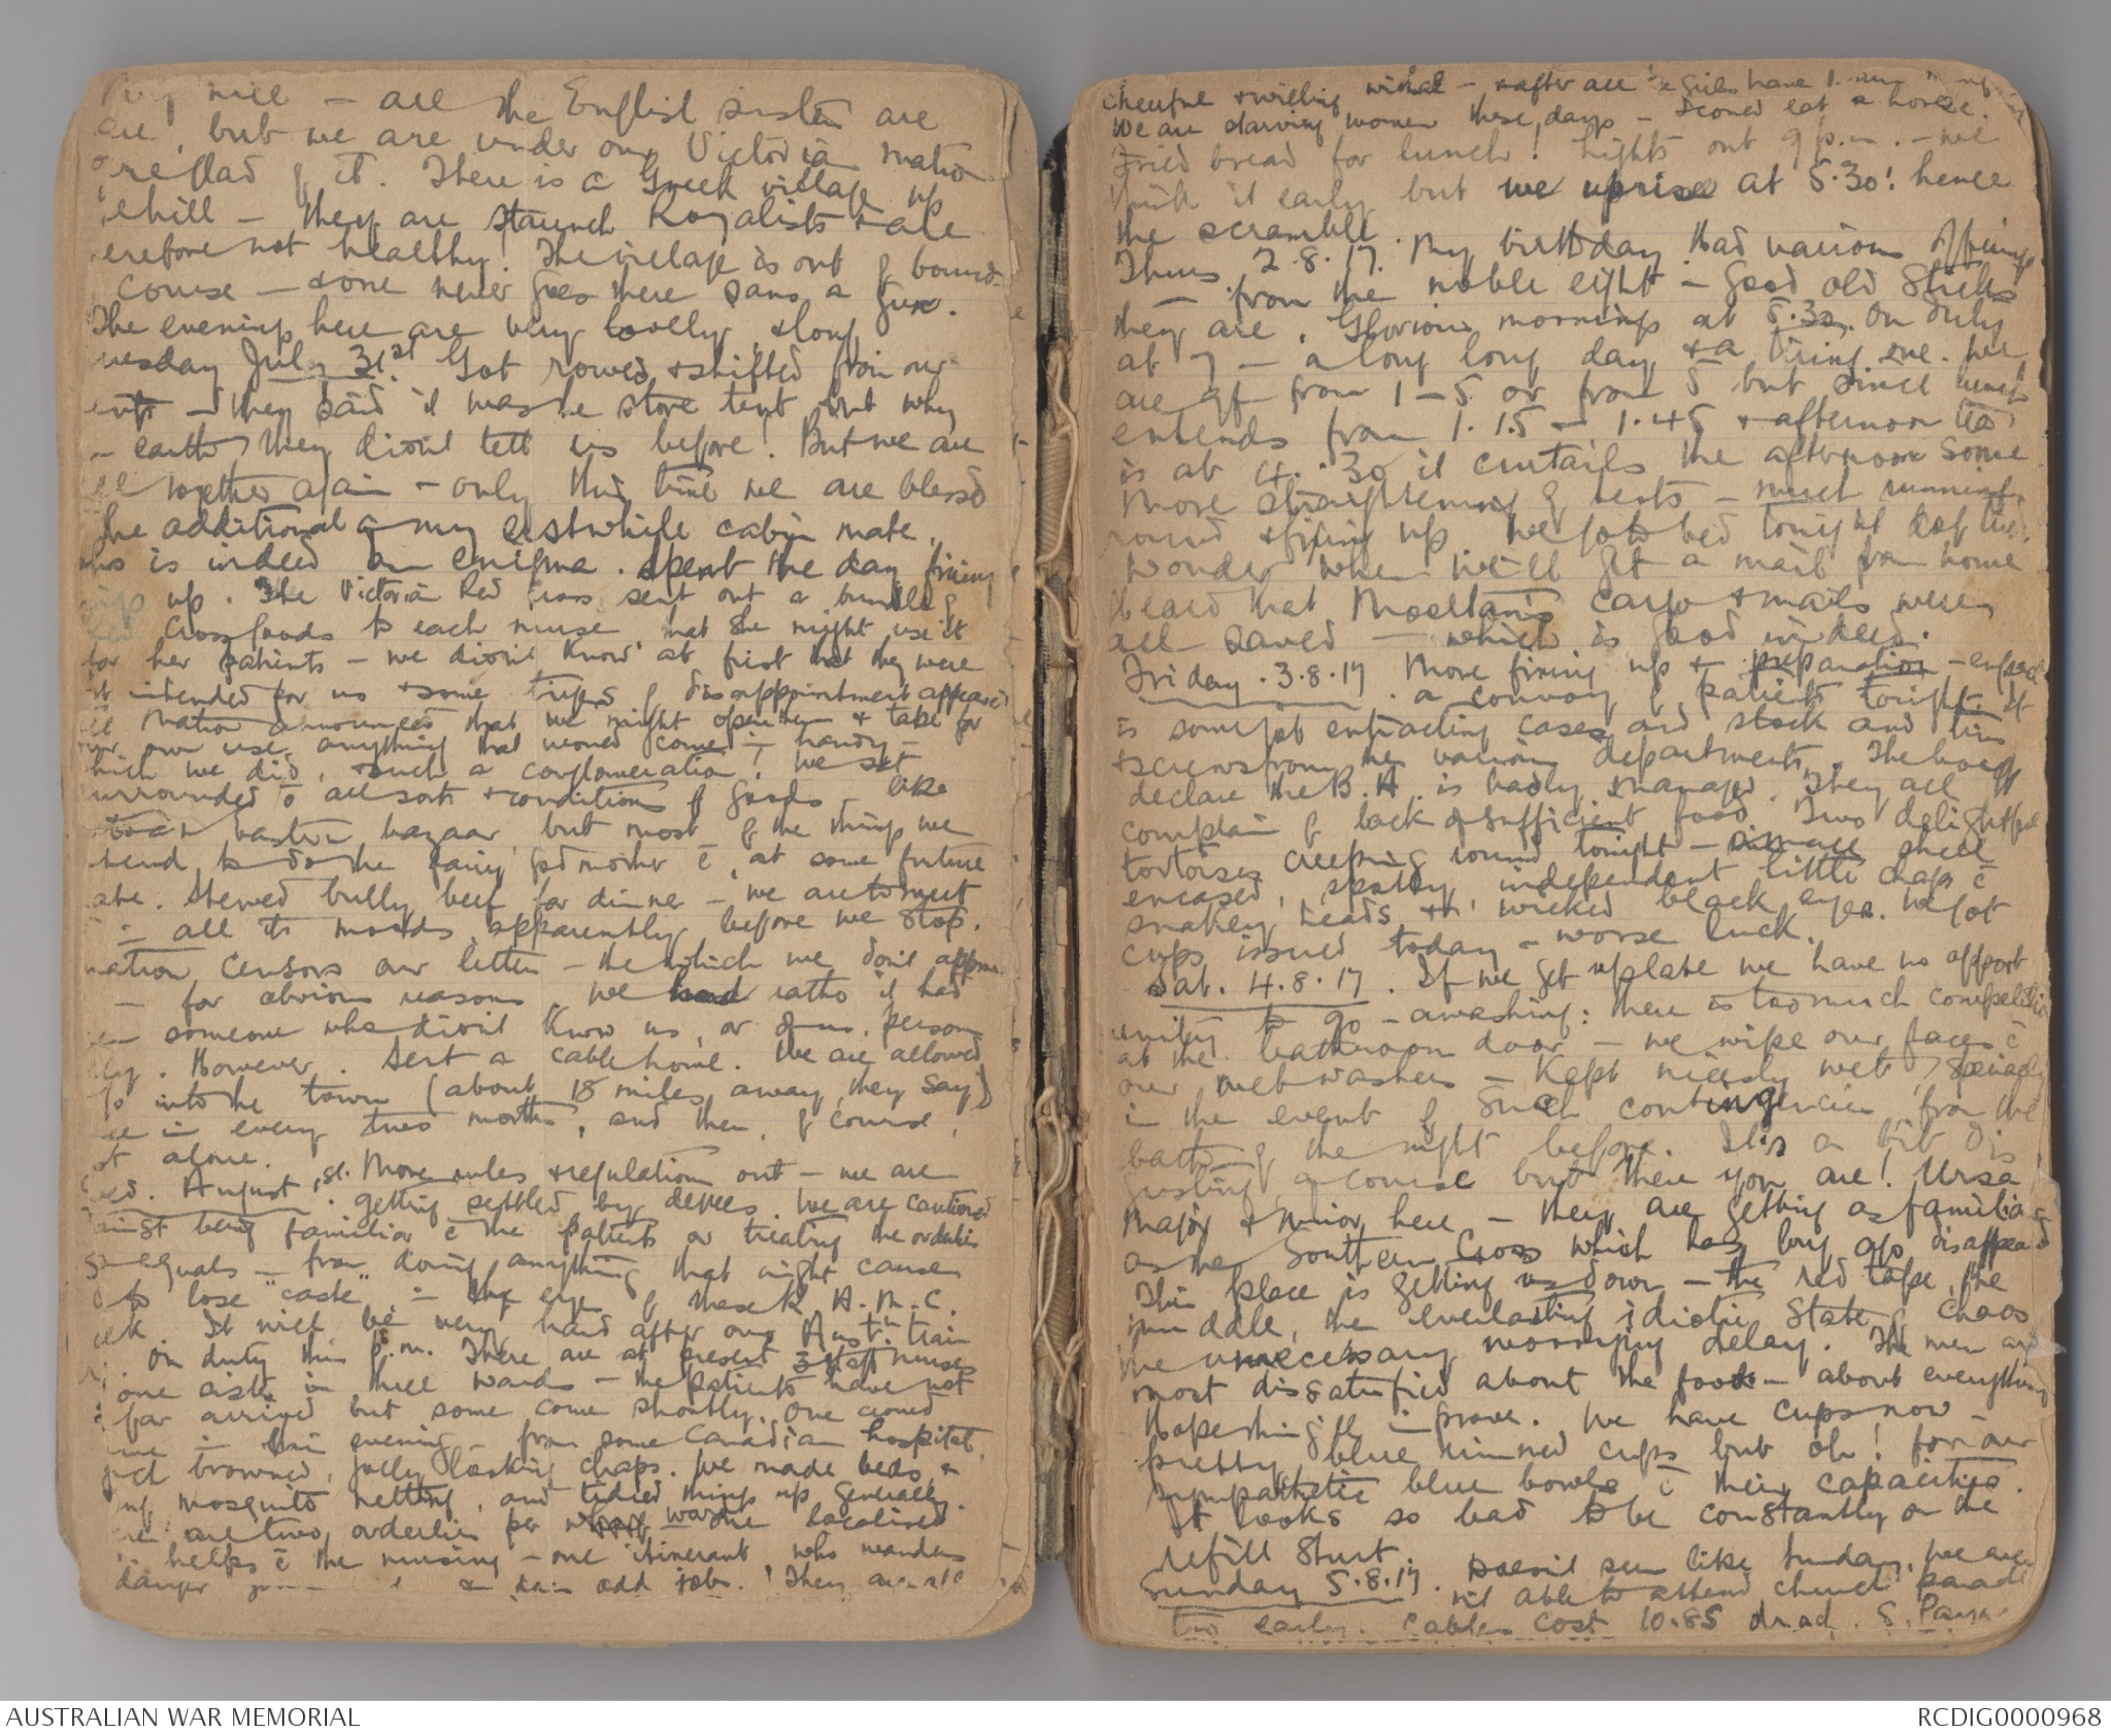 nice - all the English sisters are
are, but we are under our Victorian matron
are glad of it. There is a Greek village up
hill - they are staunch Royalists & are
erefore not healthy! The village is out of bounds
course - & one never goes there sans a gun.
The evenings here are very lovely, & long.
uesday July 31st. Got rowed & shifted from our
ents - they said it was the store tent but why
earth they didn't tell us before! But we are
together again - only this time we are blessed
the additional of my erstwhile cabin mate,
who is indeed an enigma. Spent the day fixing
up. The Victorian Red Cross sent out a bundle of
Cross goods to each nurse that she might use it
for her patients - we didn't know at first that they were
intended for us & some tinges of disappointment appeared
Matron announced that we might open them & take for
our own use anything that would come in handy -
which we did, & such a conglomeration! We sat
urrounded c̄ all sorts & conditions of goods - like
bazaar, but most of the things we
tend to do the fairy godmother c̄, at some future
ate. Stewed bully beef for dinner - we are to meet
in all its moods apparently before we stop.
Matron censors our letters - the which we don't approve
- for obvious reasons. We had rather it had
een someone who didn't know us, or of us, person
lly. However. Sent a cable home. We are allowed
to into the town (about 18 miles away they say)
ce in every two months, and then, of course,
ot alone.
Wed. August 1st. More rules & regulations out - we are
getting settled by degrees. We are cautioned
ainst being familiar c̄ the patients or treating the orderlies
as equals - from doing anything that might cause
us to lose "caste" in the eyes of these R.A.M.C.
It will be very hard after our Austn train
On duty this p.m. There are at present 3 staff nurses
one sister in three wards - the patients have not
far arrived but some come shortly. One crowd
came in this evening - from some Canadian hospital,
browned, jolly looking chaps. We made beds, &
mosquito netting, and tidied things up generally.
are two orderlies per ward one localised
helps c̄ the nursing - one itinerant, who wanders
odd jobs. They are
cheerful & willing withal - & after all girls have
We are starving women these days - I could eat a horse.
Fried bread for lunch! Lights out 9 p.m. - we
think it early but we uprise at 5.30! hence
the scramble.
Thurs. 2.8.17. My birthday. Had various offerings
- from the noble eight - good old sticks
they are. Glorious mornings at 5.30. On duty
at 7 - a long long day & a tiring one. We
are off from 1-5 or from 5 but since lunch
extends from 1.15 - 1.45 & afternoon tea
is at 4.30 it curtails the afternoon some
more straightening of tents - much running
round & fixing up. We got to bed tonight
wonder when we'll get a mail from home
Heard that Mooltan's cargo & mails were
all saved - which is good indeed.
Friday. 3.8.17. More fixing up & preparation - expect
a convoy of patients tonight. It
is some job extracting cases and stock and tins
& screws from the various departments. The boys
declare the B.A. is badly managed. They all
complain of lack of sufficient food. Two delightful
tortoises creeping round tonight - small shell
encased, spotty, independent little chaps c̄
snakey heads & wicked black eyes. We got
cups issued today - worse luck.
Sat. 4.8.17. If we get up late we have no opport
unity to go - a washing: there is too much competition
at the bathroom door - we wipe our faces c̄
our wet washers - kept nicely wet, specially
in the event of such contingencies, from the
bath of the night before. It is a bit dis
gusting of course but there you are! Ursa
Major & Minor here - they are getting as familiar
as the Southern Cross which has long ago disappeared
This place is getting us down - the red tape, the
muddle, the everlasting idiotic state of chaos
the unnecessary worrying delay. The men are
most dissatisfied about the food - about everything
Hope things'll improve. We have cups now -
pretty blue rimmed cups but oh! for our
sympathetic blue bowls c̄ their capacities.
It looks so bad to be constantly on the
refill stunt.
Sunday 5.8.17. Doesn't seem like Sunday. We are
not able to attend church parade
too early. Cables cost 10.85 drad.
AUSTRALIAN WAR MEMORIAL
RCDIG0000968